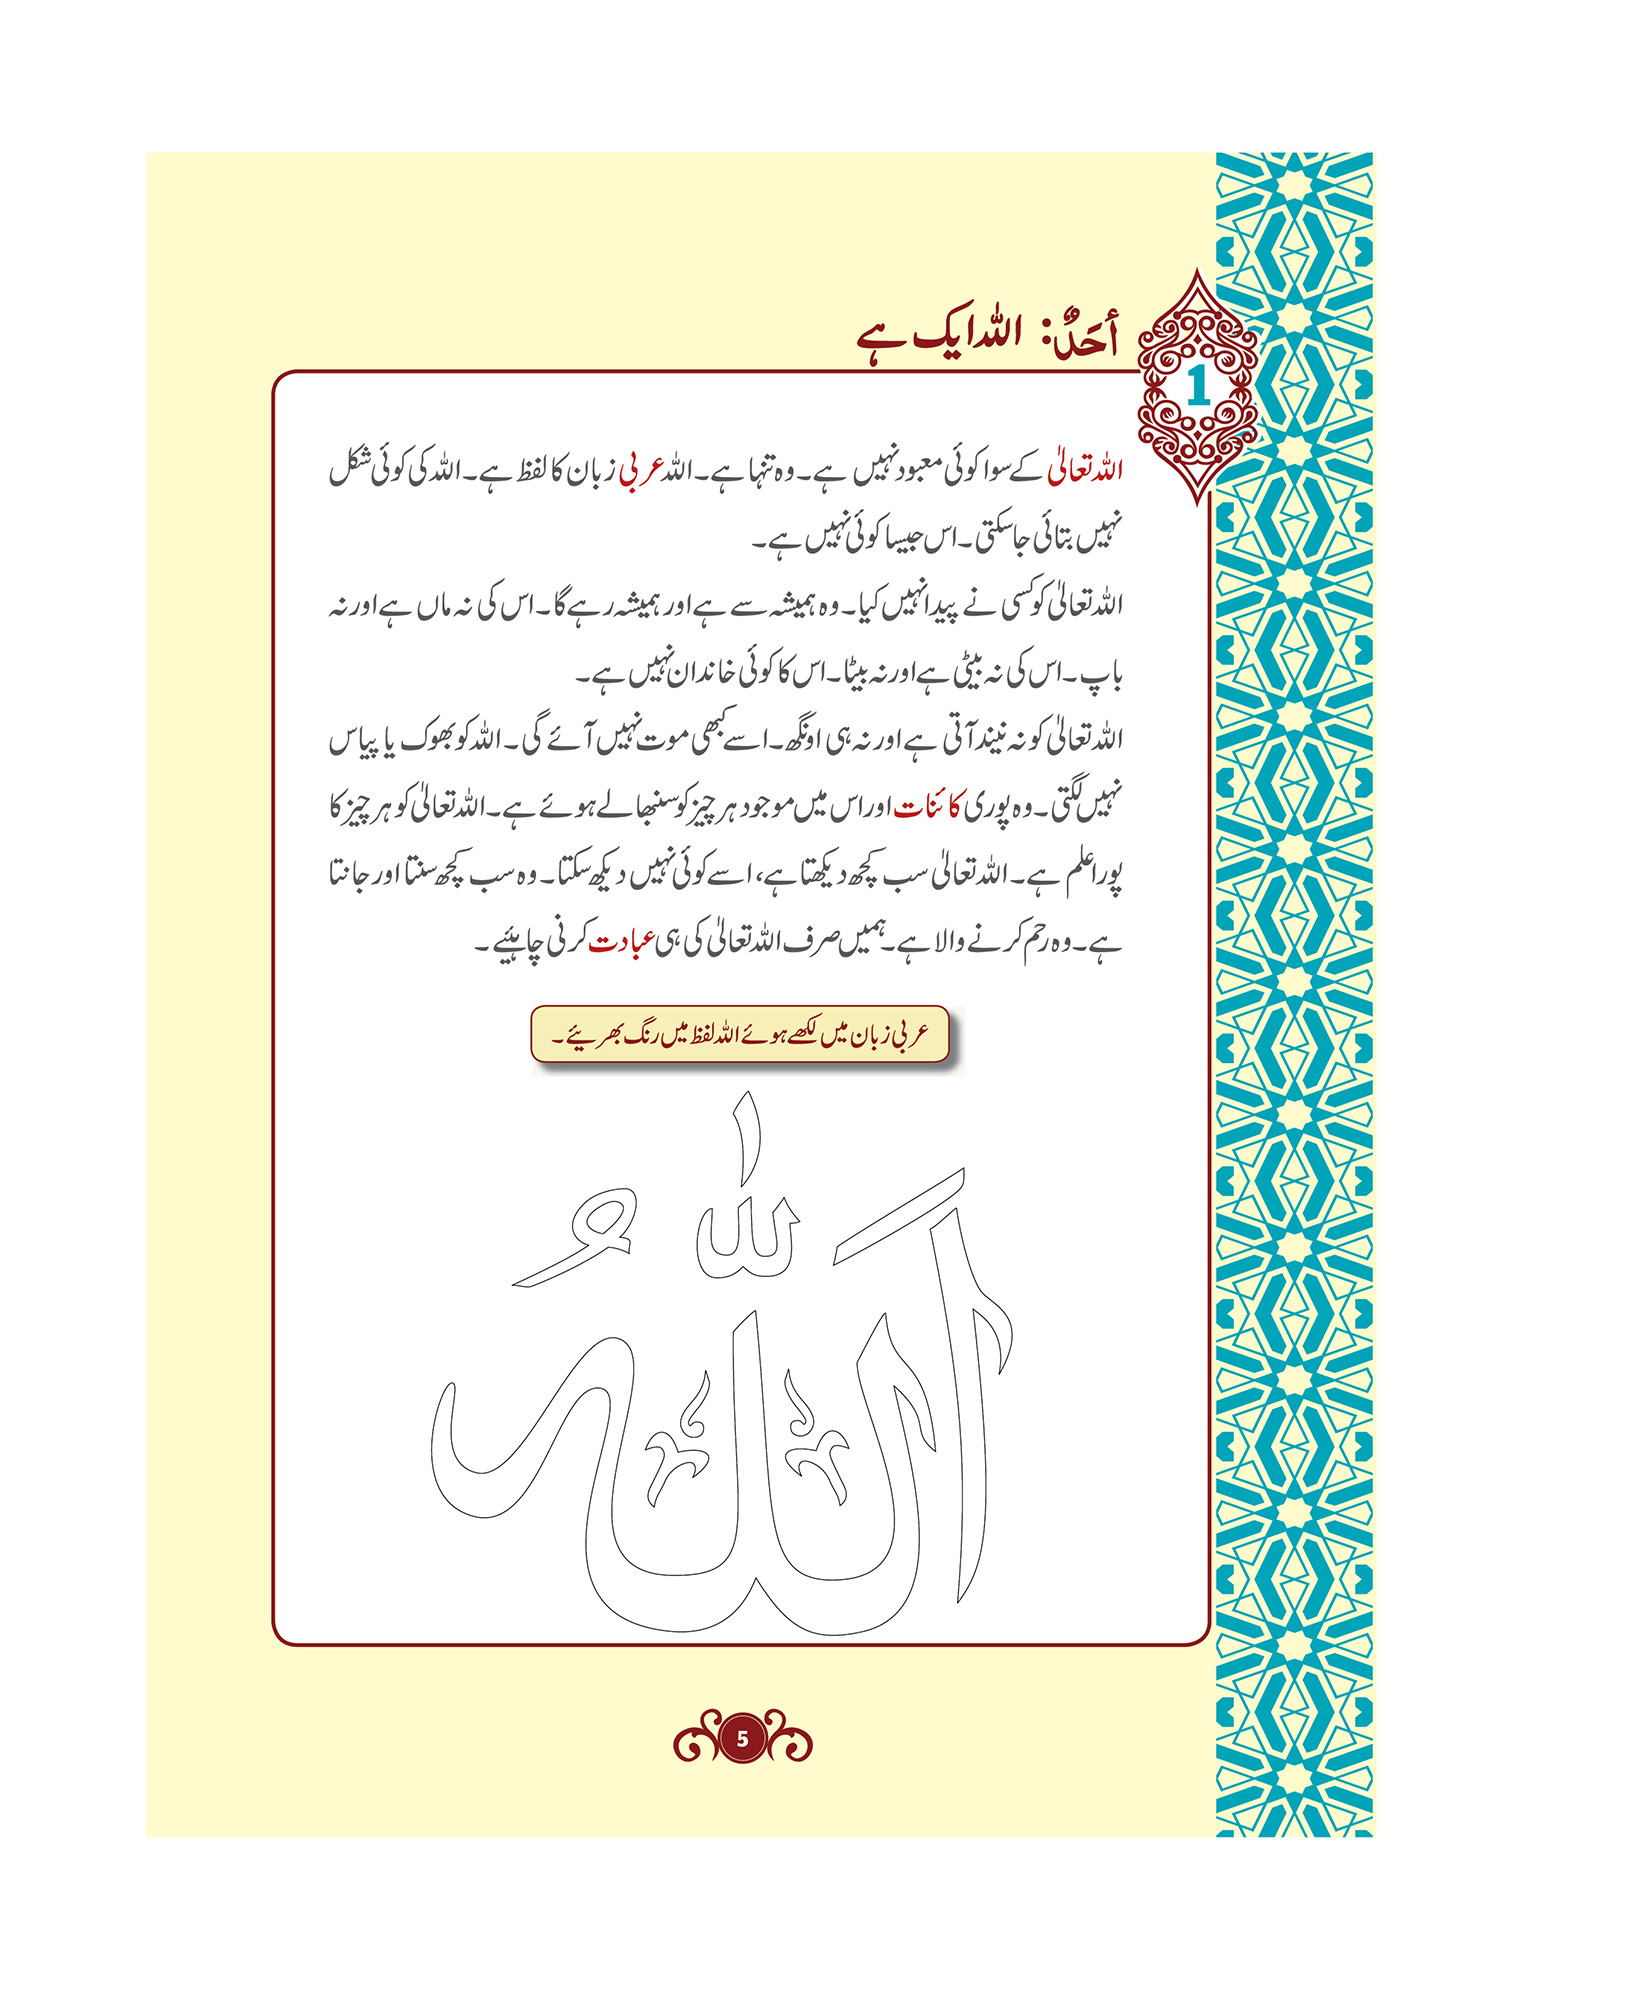 1
أَحَدٌ: اللہ ایک ہے
اللہ تعالیٰ کے سوا کوئی معبود نہیں ہے۔ وہ تنہا ہے۔ اللہ عربی زبان کا لفظ ہے۔ اللہ کی کوئی شکل
نہیں بتائی جاسکتی۔ اس جیسا کوئی نہیں ہے۔
اللہ تعالیٰ کو کسی نے پیدا نہیں کیا۔ وہ ہمیشہ سے ہے اور ہمیشہ رہے گا۔ اس کی نہ ماں ہے اور نہ
باپ۔ اس کی نہ بیٹی ہے اور نہ بیٹا۔ اس کا کوئی خاندان نہیں ہے۔
اللہ تعالیٰ کو نہ نیند آتی ہے اور نہ ہی اونگھ۔ اسے کبھی موت نہیں آئے گی۔ اللہ کو بھوک یا پیاس
نہیں لگتی۔ وہ پوری کائنات اور اس میں موجود ہر چیز کو سنبھالے ہوئے ہے۔ اللہ تعالیٰ کو ہر چیز کا
پورا علم ہے۔ اللہ تعالیٰ سب کچھ دیکھتا ہے، اسے کوئی نہیں دیکھ سکتا۔ وہ سب کچھ سنتا اور جانتا
ہے۔ وہ رحم کرنے والا ہے۔ ہمیں صرف اللہ تعالیٰ کی ہی عبادت کرنی چاہئیے۔
عربی زبان میں لکھے ہوئے اللہ لفظ میں رنگ بھریئے۔
اَللّٰهُ
5